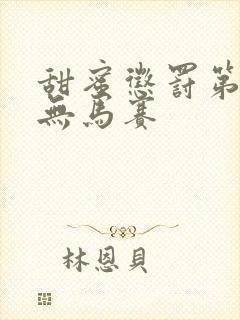 甜蜜懲罰第
無馬賽
林恩貝